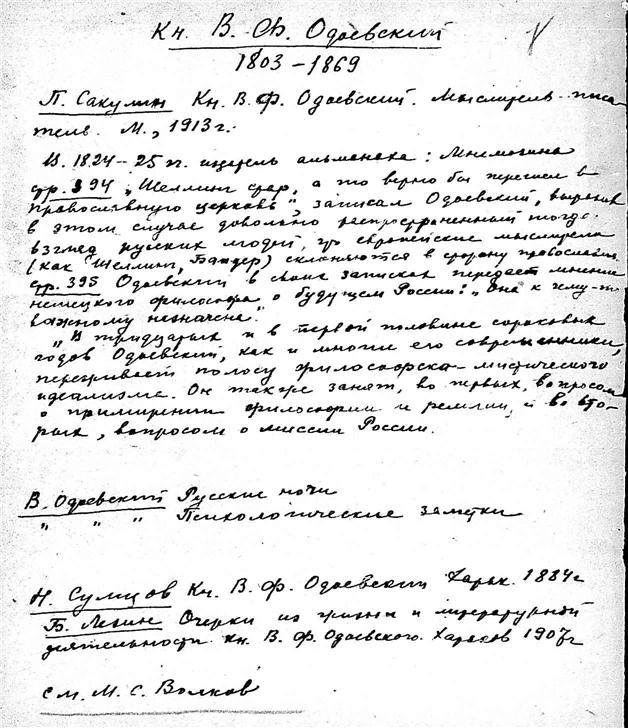 Кн. В. Ф. Одоевский
1803 – 1869
П. Сакулин Кн. В. Ф. Одоевский. Мыслитель-писа-
тель. М., 1913 г.
В 1824–25 гг. издатель альманаха: Мнемозина
стр. 394 „Шеллинг стар, а то верно бы перешел в
православную церковь", записал Одоевский, выразив
в этом случае довольно распространенный тогда
взгляд русских людей, что европейские мыслители
(как Шеллинг, Баадер) склоняются в сторону православия.
Стр. 395 Одоевский в своих записках передает мнение
немецкого философа о будущем России: „Она к чему-то
важному назначена."
„В тридцатых и в первой половине сороковых
годов Одоевский, как и многие его современники,
переживает полосу философско-мистического
идеализма. Он также занят, во первых, вопросом
о примирении философии и религии, и во вто-
рых, вопросом о миссии России.
В. Одоевский Русские ночи
„ „ „ Психологические заметки
Н. Сумцов Кн. В. Ф. Одоевский Харьк. 1884 г
Б. Лезин Очерки из жизни и литературной
деятельности кн. В. Ф. Одоевского. Харьков 1907 г
см. М. С. Волков